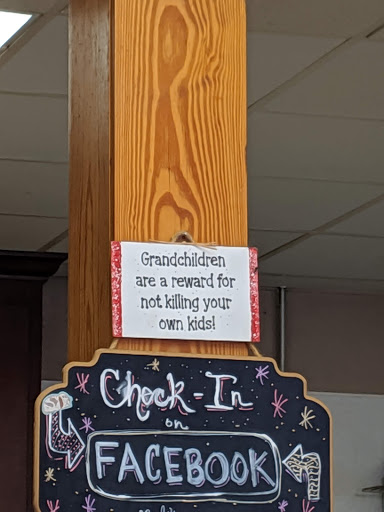 Grandchildren
are a reward for
not killing your
own kids!
Check-In
on
FACEBOOK